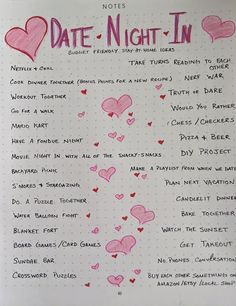 NOTES
DATE NIGHT IN
BUDGET FRIENDLY STAY-AT-HOME IDEAS
NETFLIX & CHILL
COOK DINNER TOGETHER (BONUS POINTS FOR A NEW RECIPE)
WORKOUT TOGETHER
GO FOR A WALK
MARIO KART
HAVE A FONDUE NIGHT
MOVIE NIGHT IN WITH ALL OF THE SNACKY-SNACKS
BACKYARD PICNIC
S'MORES & STARGAZING
DO A PUZZLE TOGETHER
WATER BALLOON FIGHT
BLANKET FORT
BOARD GAMES/CARD GAMES
SUNDAE BAR
CROSSWORD PUZZLES
TAKE TURNS READING TO EACH OTHER
NERF WAR
TRUTH OR DARE
WOULD YOU RATHER
CHESS/CHECKERS
PIZZA & BEER
DIY PROJECT
MAKE A PLAYLIST FROM WHEN WE DATED
PLAN NEXT VACATION
CANDLELIT DINNER
BAKE TOGETHER
WATCH THE SUNSET
GET TAKEOUT
NO PHONES CONVERSATION
BUY EACH OTHER SOMETHING ON
AMAZON/ETSY/LOCAL SHOP